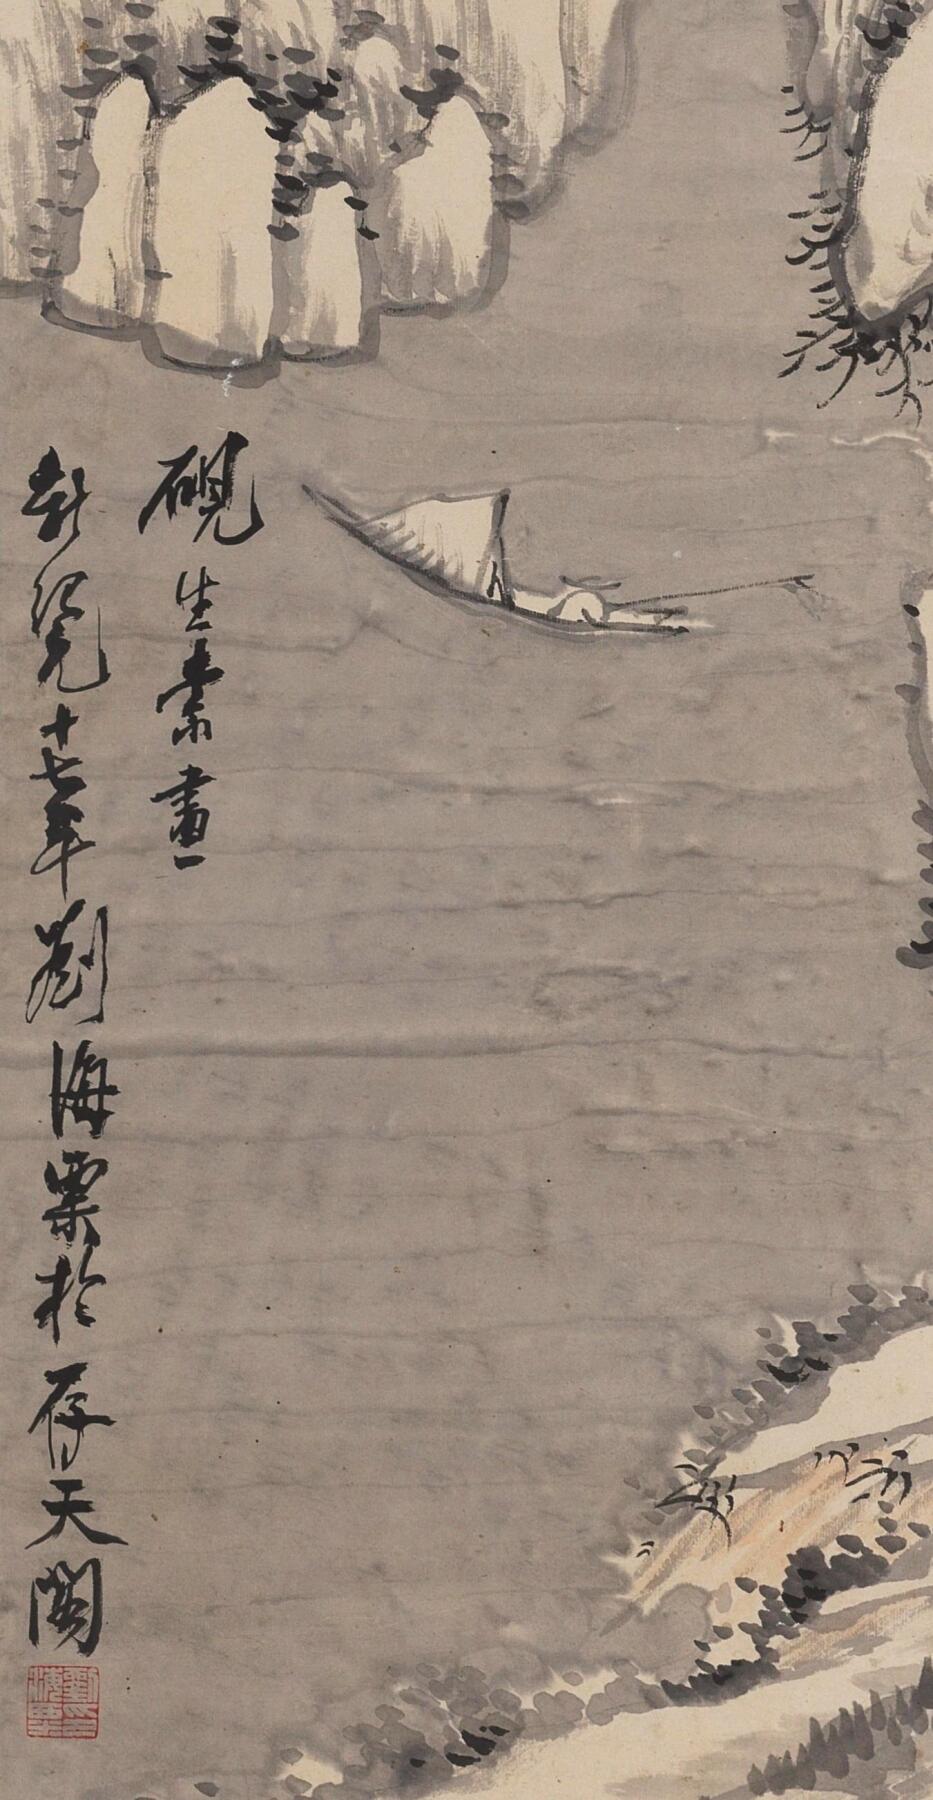 硯生索畫
新紀元十七年劉海粟於存天閣
劉海粟